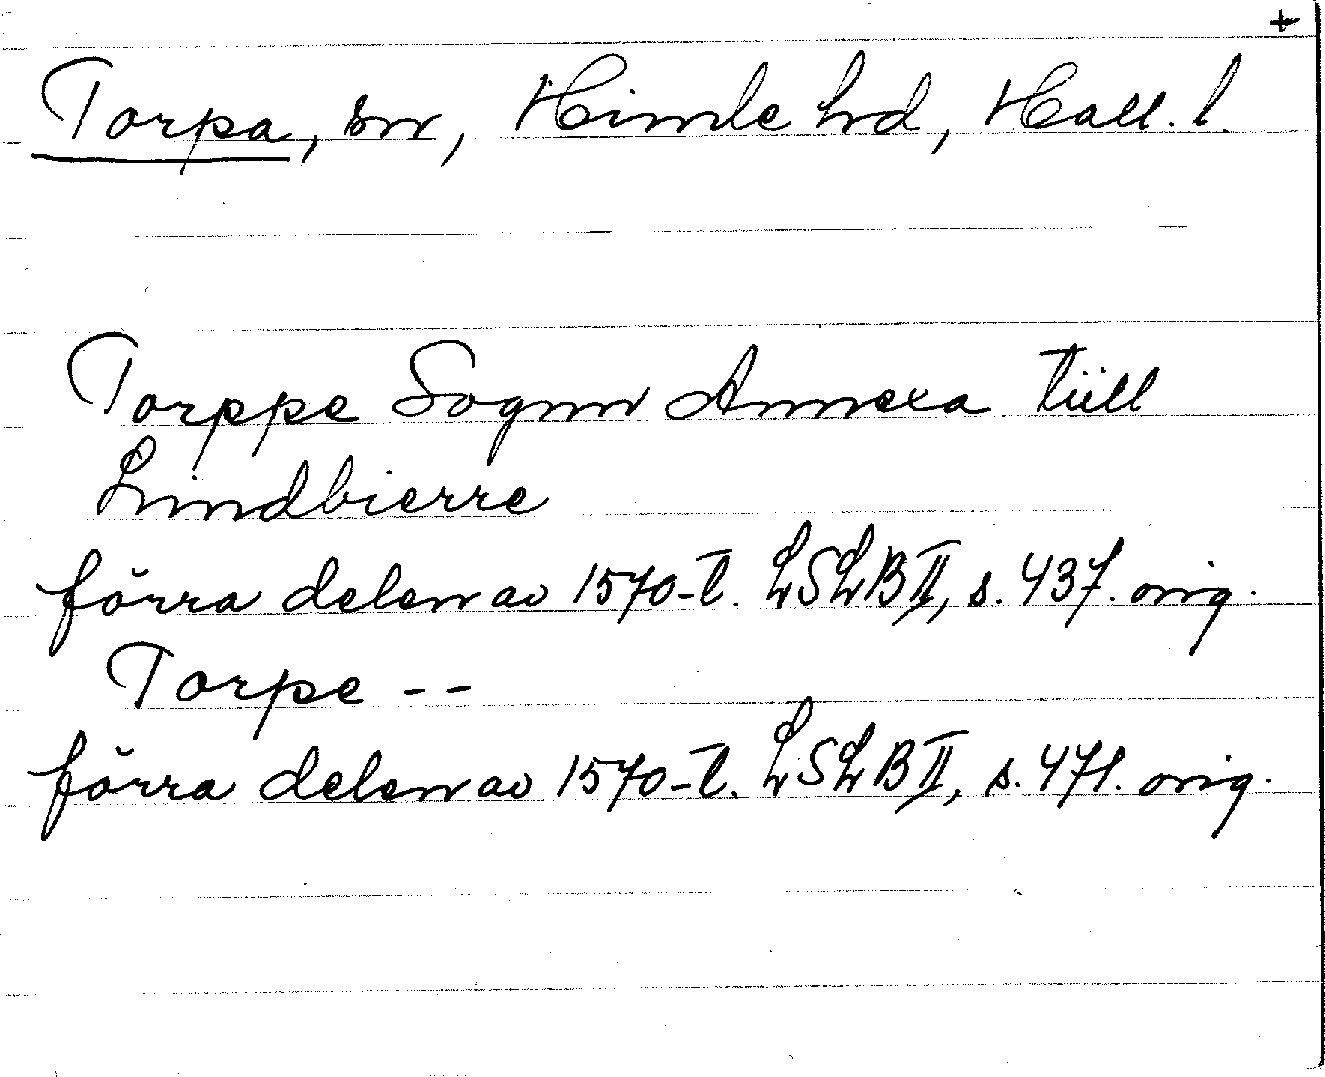 +
Torpa, sn, Himle hd, Hall. l.
Torppe Sognn Annexa tüll
Lindbierre
förra delen av 1570-t. LSLB II, s. 437. orig.
Torpe --
förra delen av 1570-t. LSLB II, s. 471. orig.